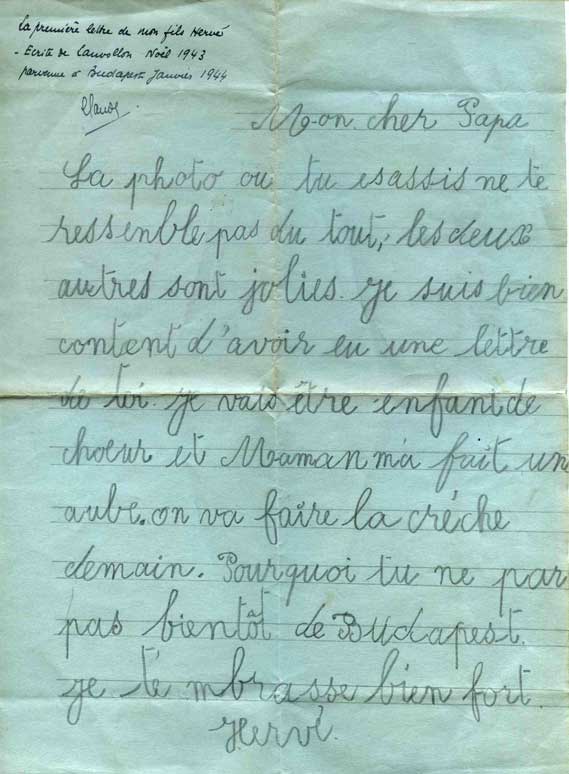 La première lettre de mon fils Hervé
- Ecrite de Lanvollon Noël 1943
parvenue à Budapest Janvier 1944
Mon cher Papa
La photo ou tu esassis ne te
ressenble pas du tout, les deux
autres sont jolies. je suis bien
content d'avoir eu une lettre
de toi. je vais être enfant de
choeur et Maman m'a fait un
aube. on va faire la créche
demain. Pourquoi tu ne par
pas bientôt de Budapest.
je t'é mbrasse bien fort.
Hervé.